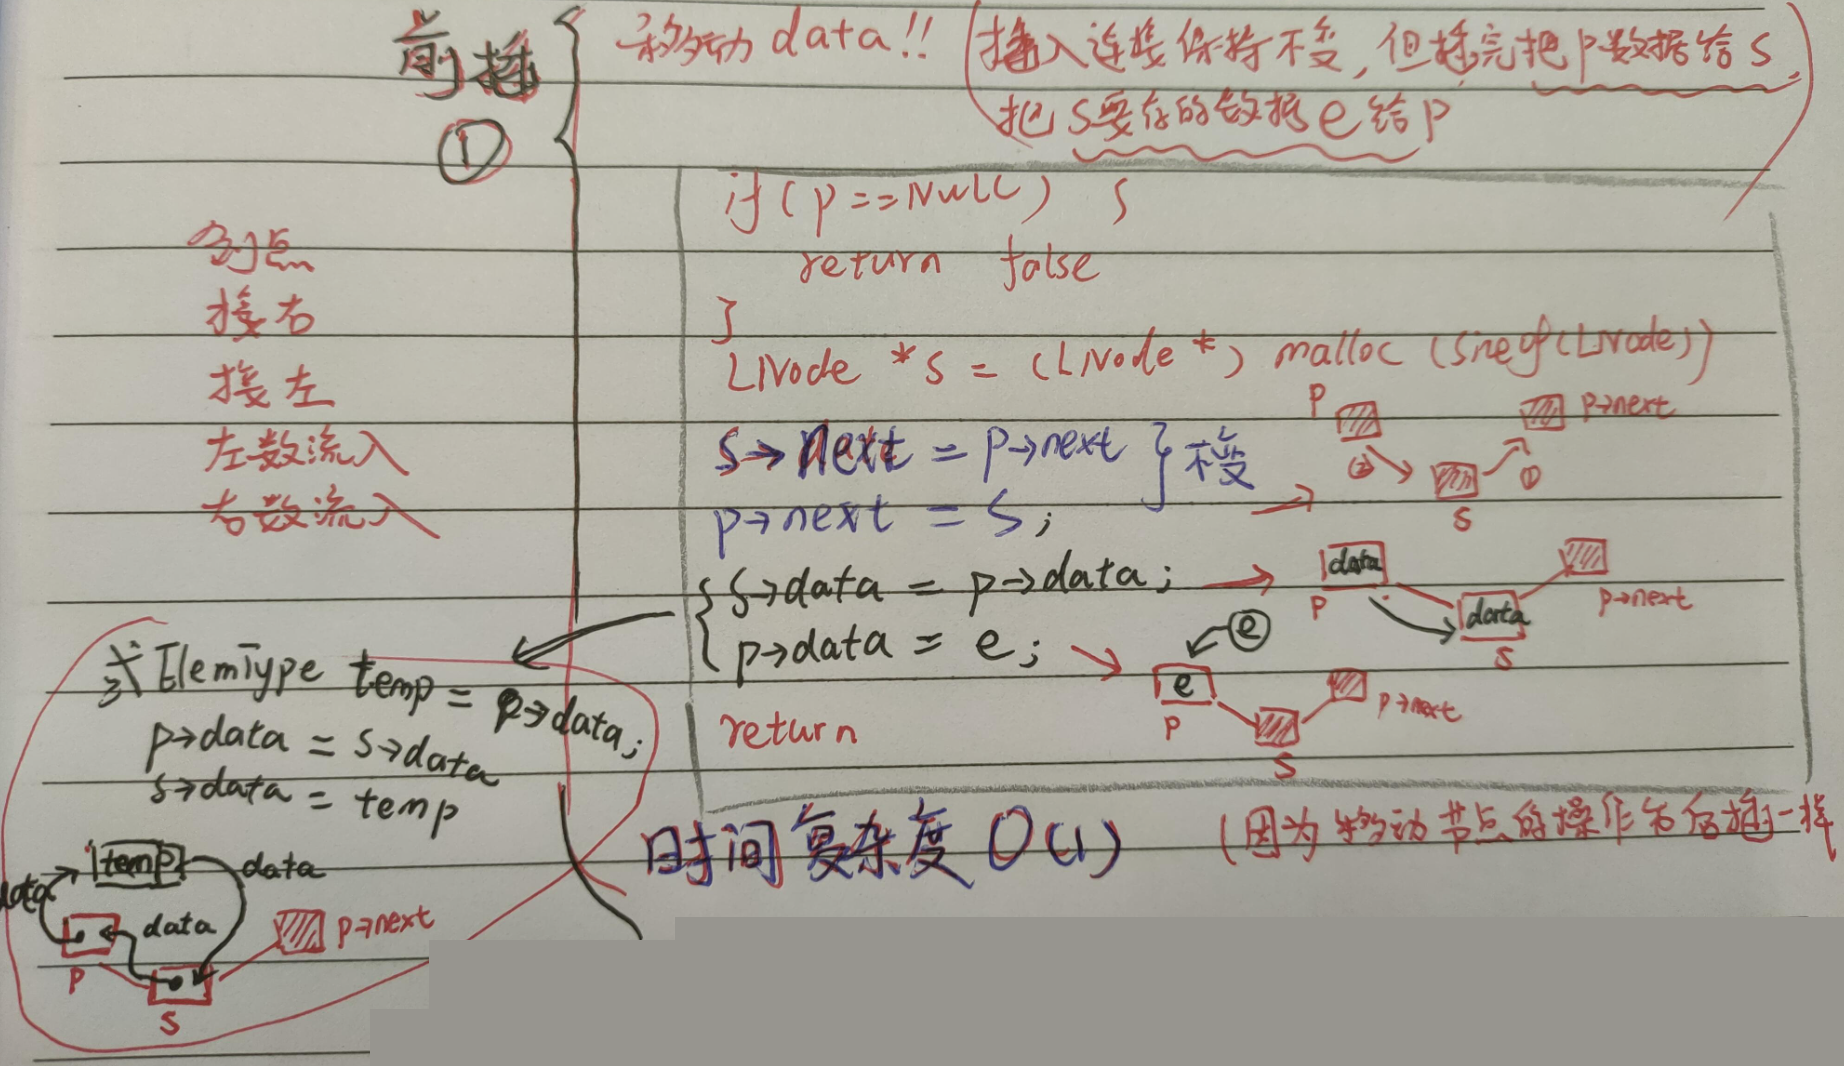 前插
①
移动data!!(插入连接保持不变,但插完把p数据给s,
把s要存的数据e给p)
if(p==NULL) {
return false
}
LNode *s = (LNode *) malloc (sizeof(LNode))
s→next = p→next } 不变
p→next = s;
{ s→data = p→data;
p→data = e;
return
时间复杂度 O(1) (因为移动节点的操作和后插一样
接右
接左
左数流入
右数流入
p p→next
② ①
s
data
p data p→next
s
e
e
p p→next
s
或 ElemType temp = p→data;
p→data = s→data
s→data = temp
temp data
data
data p→next
p
s